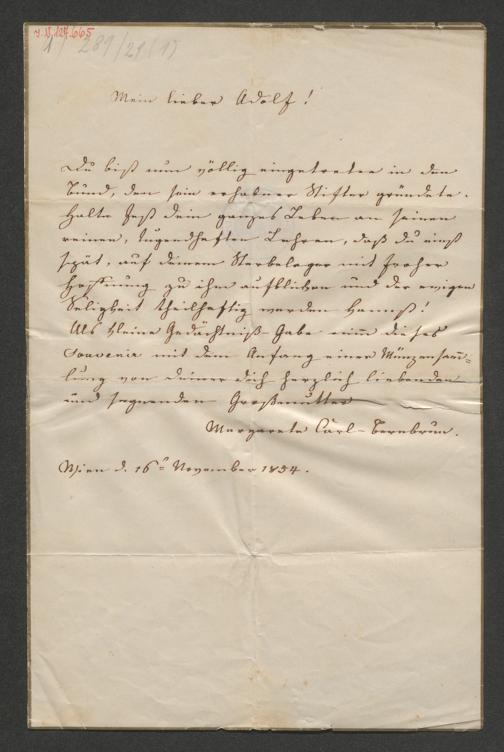 I.N. 127.665
1/ 289/29 (1)
Mein lieber Adolf!
Du bist nun völlig eingetreten in den
Bund, den sein erhabner Stifter gründete.
Halte fest dein ganzes Leben an seinen
reinen, tugendhaften Lehren, daß du einst
spät, auf deinem Sterbelager mit froher
Hoffnung zu ihm aufblicken und der ewigen
Seligkeit theilhaftig werden kannst!
Als kleine Gedächtniß Gabe nimm dieses
Souvenir mit dem Anfang einer Münzensamm=
lung von deiner dich herzlich liebenden
und segnenden Großmutter
Margarete Carl-Bernbrun.
Wien d. 16 November 1854.